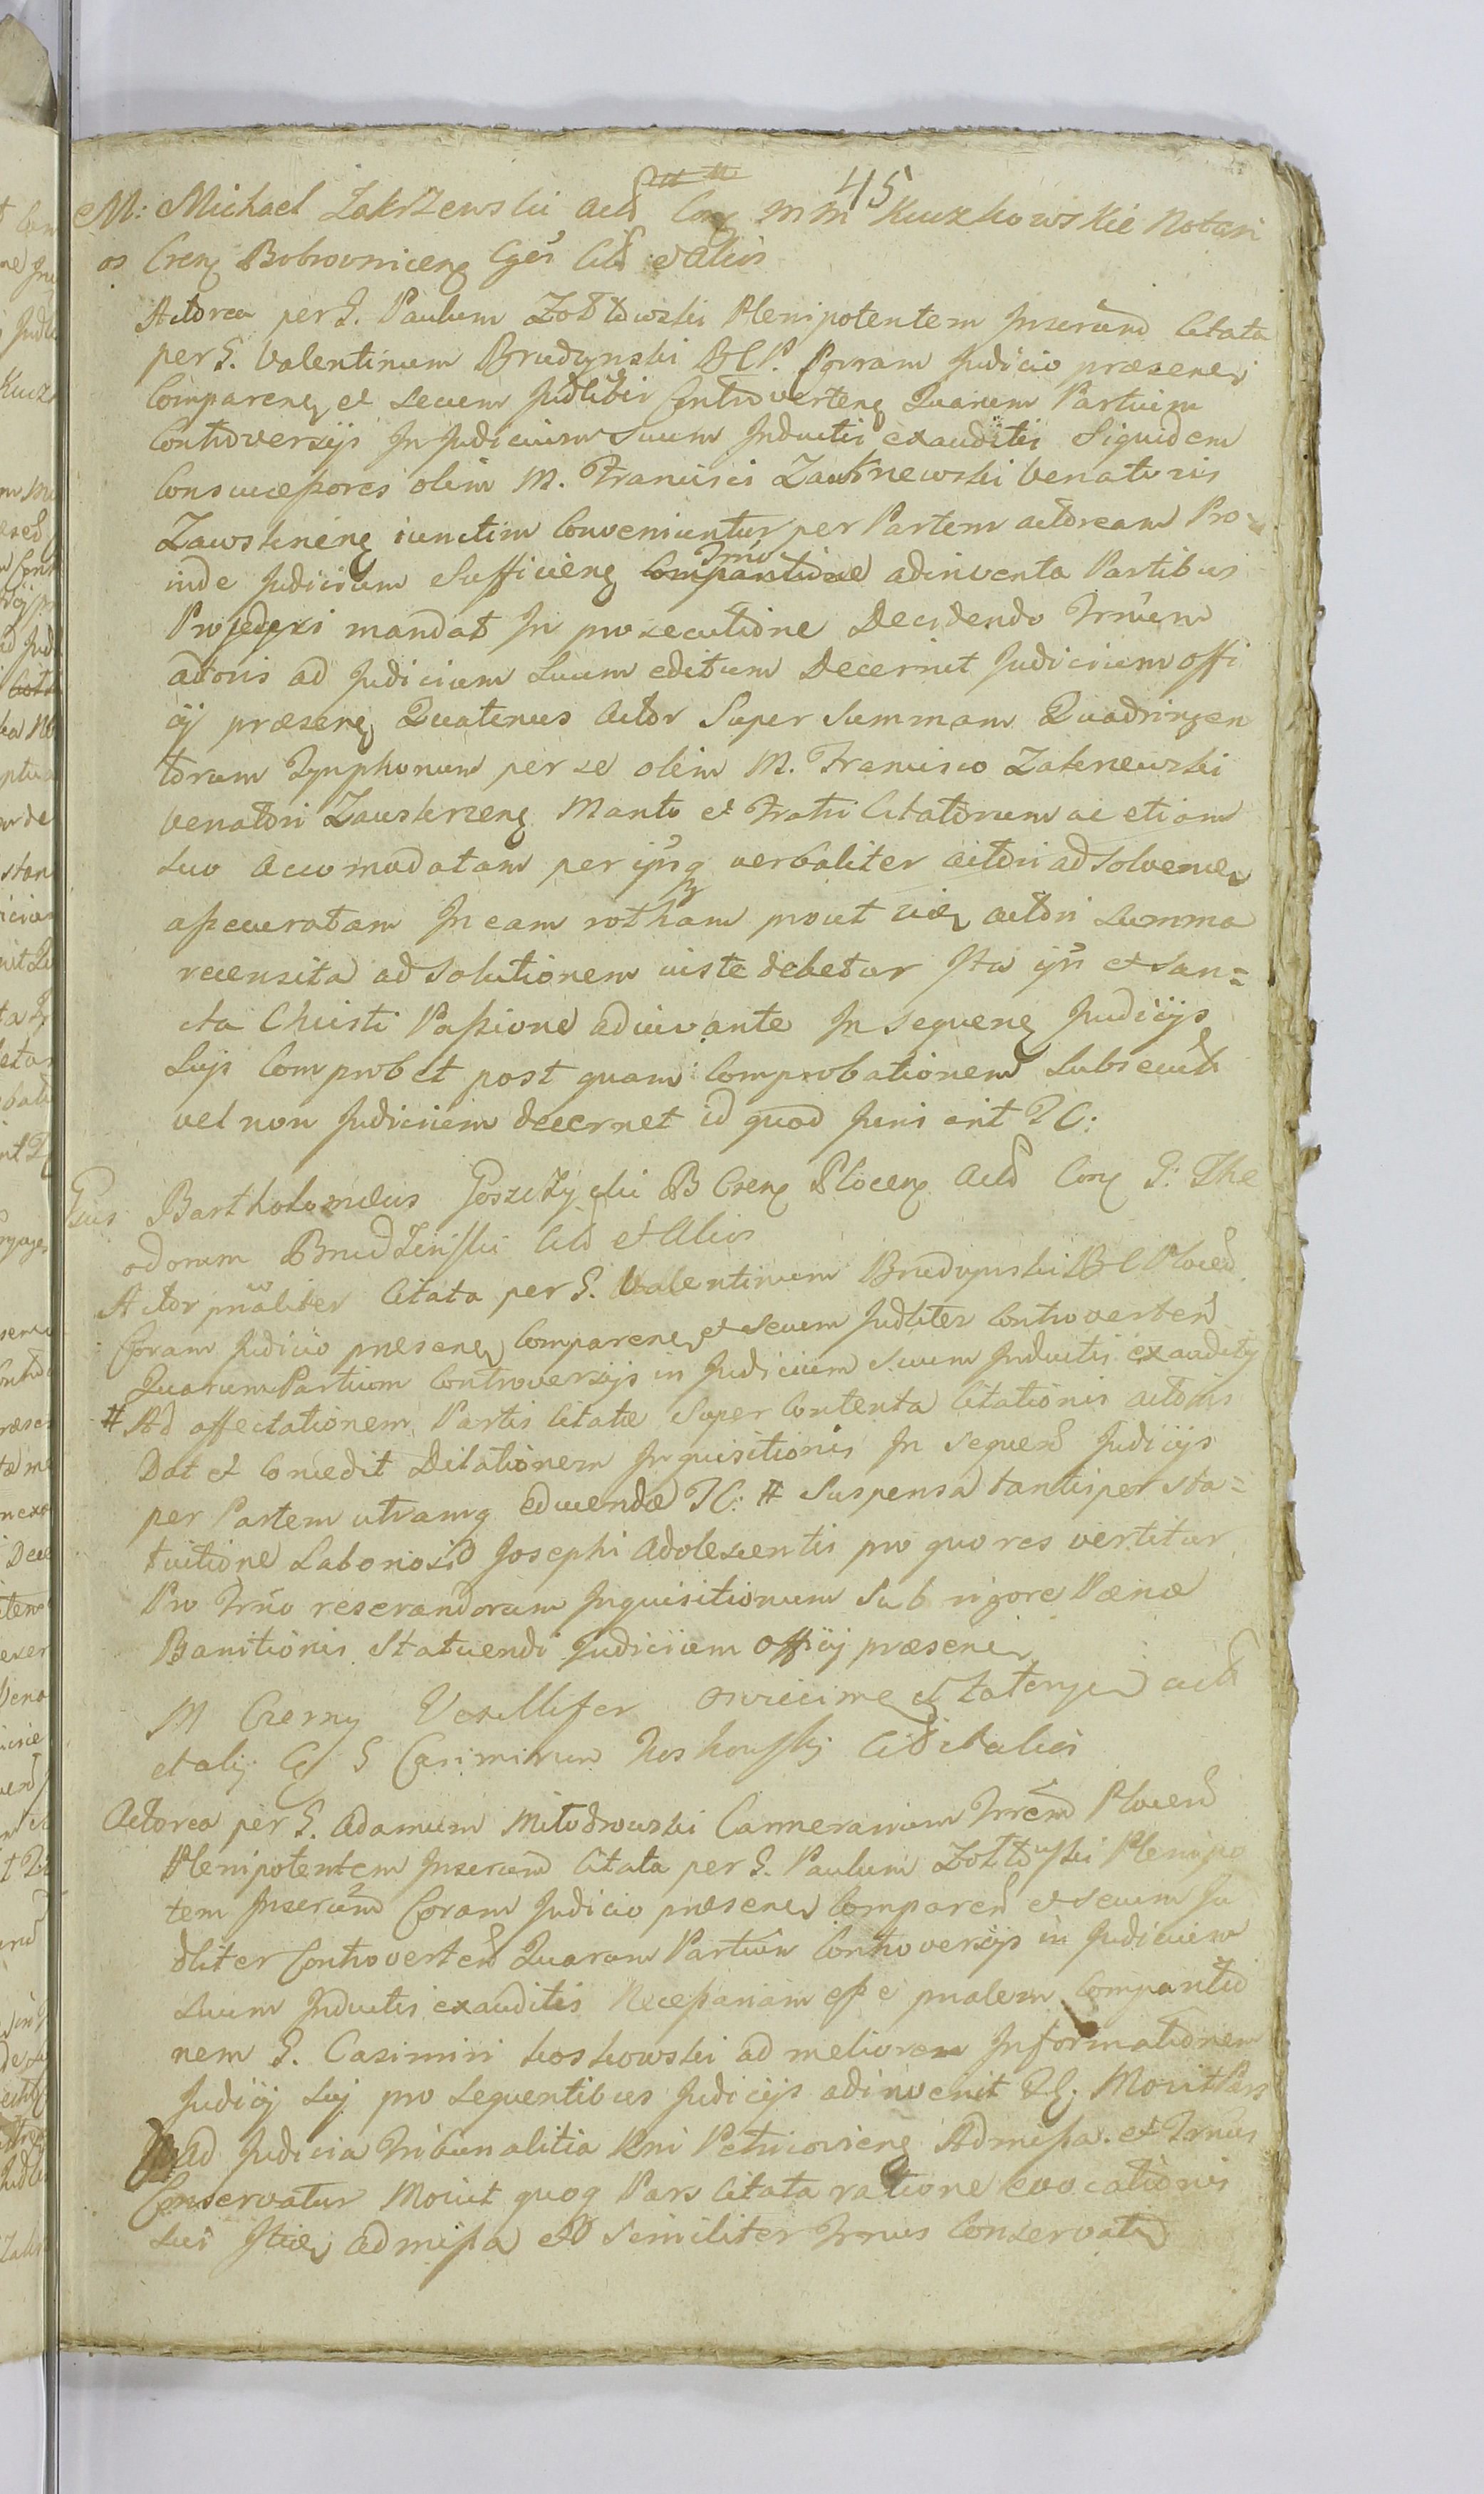 45
M: Michael Zakrzewski Actd Cong M M Kuczkowskie Notari
os Creng Bobrovniceng Cges Citd et Alios
Actorea per G. Paulum Zołtowski Plenipotentem Inserund Citata
per G. Valentinum Brudzynski B C P. Coram Judicio præsenej
Comparenej et secum Judlitbir Controverteng Quarum Partium
Controversijs In Judicium Suum Inductis exauditis Siquidem
Consuccessores olim M. Francisci Zakrzewski Venatoris
Zawskrneng iunctim Conveniuntur per Partem actoream Pro
inde Judicium Sufficieng Trmo Compartione adinventa Partibus
Procedere mandat In prosecutione Decidendo Trmum
actoris ad Judicium Suum editum Decernit Judicium offi
cij præseng Quatenus Actor Super Summam Quadringen
torum Tynphonum per se olim M. Francisco Zakrzewski
Venatori Zawskrzeng Marito et Fratri Citatorum ac etiam
suo Accomodatam per ipsg verbaliter actori ad Solvenej
asseveratam In eam rotham prout viej actori Summa
recensita ad Solutionem iuste debetur Ita ijs et San=
cta Christi Passione adiuvante In sequeng Judicijs
Suijs Comprobet post quam Comprobationem Subsecuta
vel non Judicium decernet id quod Juris erit TC:
Gsus Bartholomeus Goszczycki B Creng Ploceng Actd Cong G: The
odorum Brudzinski Citd et Alios
Actor prnaliter Citata per G. Valentinum Brudzynski B C Ploced
Coram Judicio præsenej Comparenej et secum Judliter Controvertend
Quarum Partium Controversijs in Judicium Suum Inductis exauditis
# Ad affectationem Partis Citatæ Super Contenta Citationis actoris
Dat et Concedit Dilationem Inquisitionis In Sequend Judicijs
per Partem utramq educendæ TC: # Suspensa tantisper Sta=
tuitione Laboriosi Josephi Adolescentis pro quo res vertitur
Pro Trmo reserandorum Inquisitionum Sub rigore Pænæ
Banitionis Statuendi Judicium Officij præsenej
M Czerny Vexillifer et Zatorzen actd
et alij Cg G Casimirum Koskowskij Citd et alios
Actorea per G. Adamum Milodrowski Camerarium Trrend Plocend
Plenipotentem Inserund Citata per G. Paulum Zołtowski Plenipo
tem Inserund Coram Judicio præsenej Comparend et secum Ju
dliter Controvertend Quarum Partium Controversijs in Judicium
Suum Inductis exauditis Necessariam esse prnalem Comparitio
nem G. Casimiri Koskowski ad meliorem Informationem
Judicij Sui pro Sequentibus Judicijs adinvenit TC. Movit Pars
Ad Judicia Tribunalitia Rni Petricovieng Admissa et Trmus
Conservatur Movit quoq Pars Citata ratione evocationis
Sui Itiej admissa est Similiter Trmus Conservatur